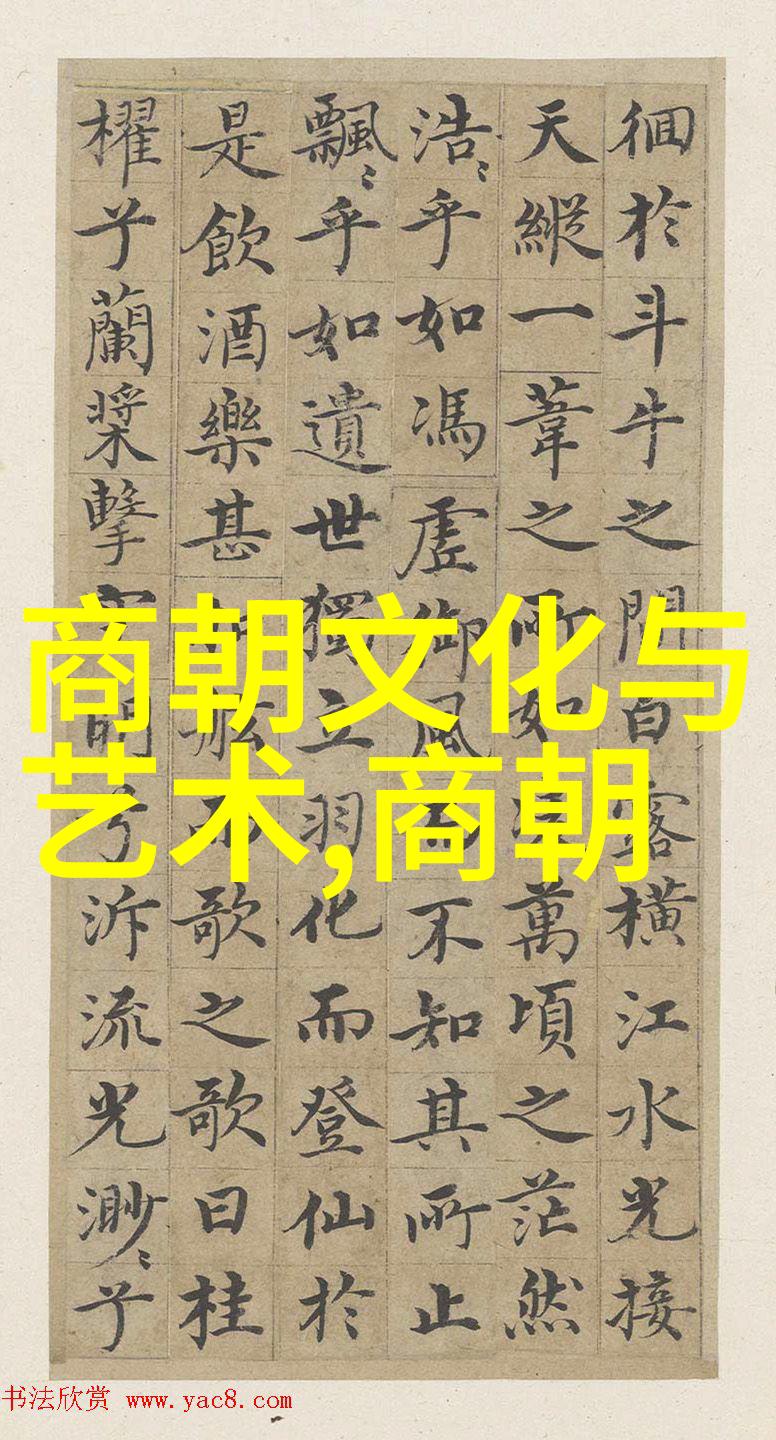 徊於斗牛之間白露橫江水光接
天縱一葦之所如萬頃之茫然
浩〻乎如馮虛御風而不知其所止
飄〻乎如遺世獨立羽化而登仙於
是飲酒樂甚舷而歌之歌曰桂
櫂兮蘭槳擊明兮泝流光渺〻兮
商朝文化与
艺术,商朝
书法欣赏 www.yac8.com